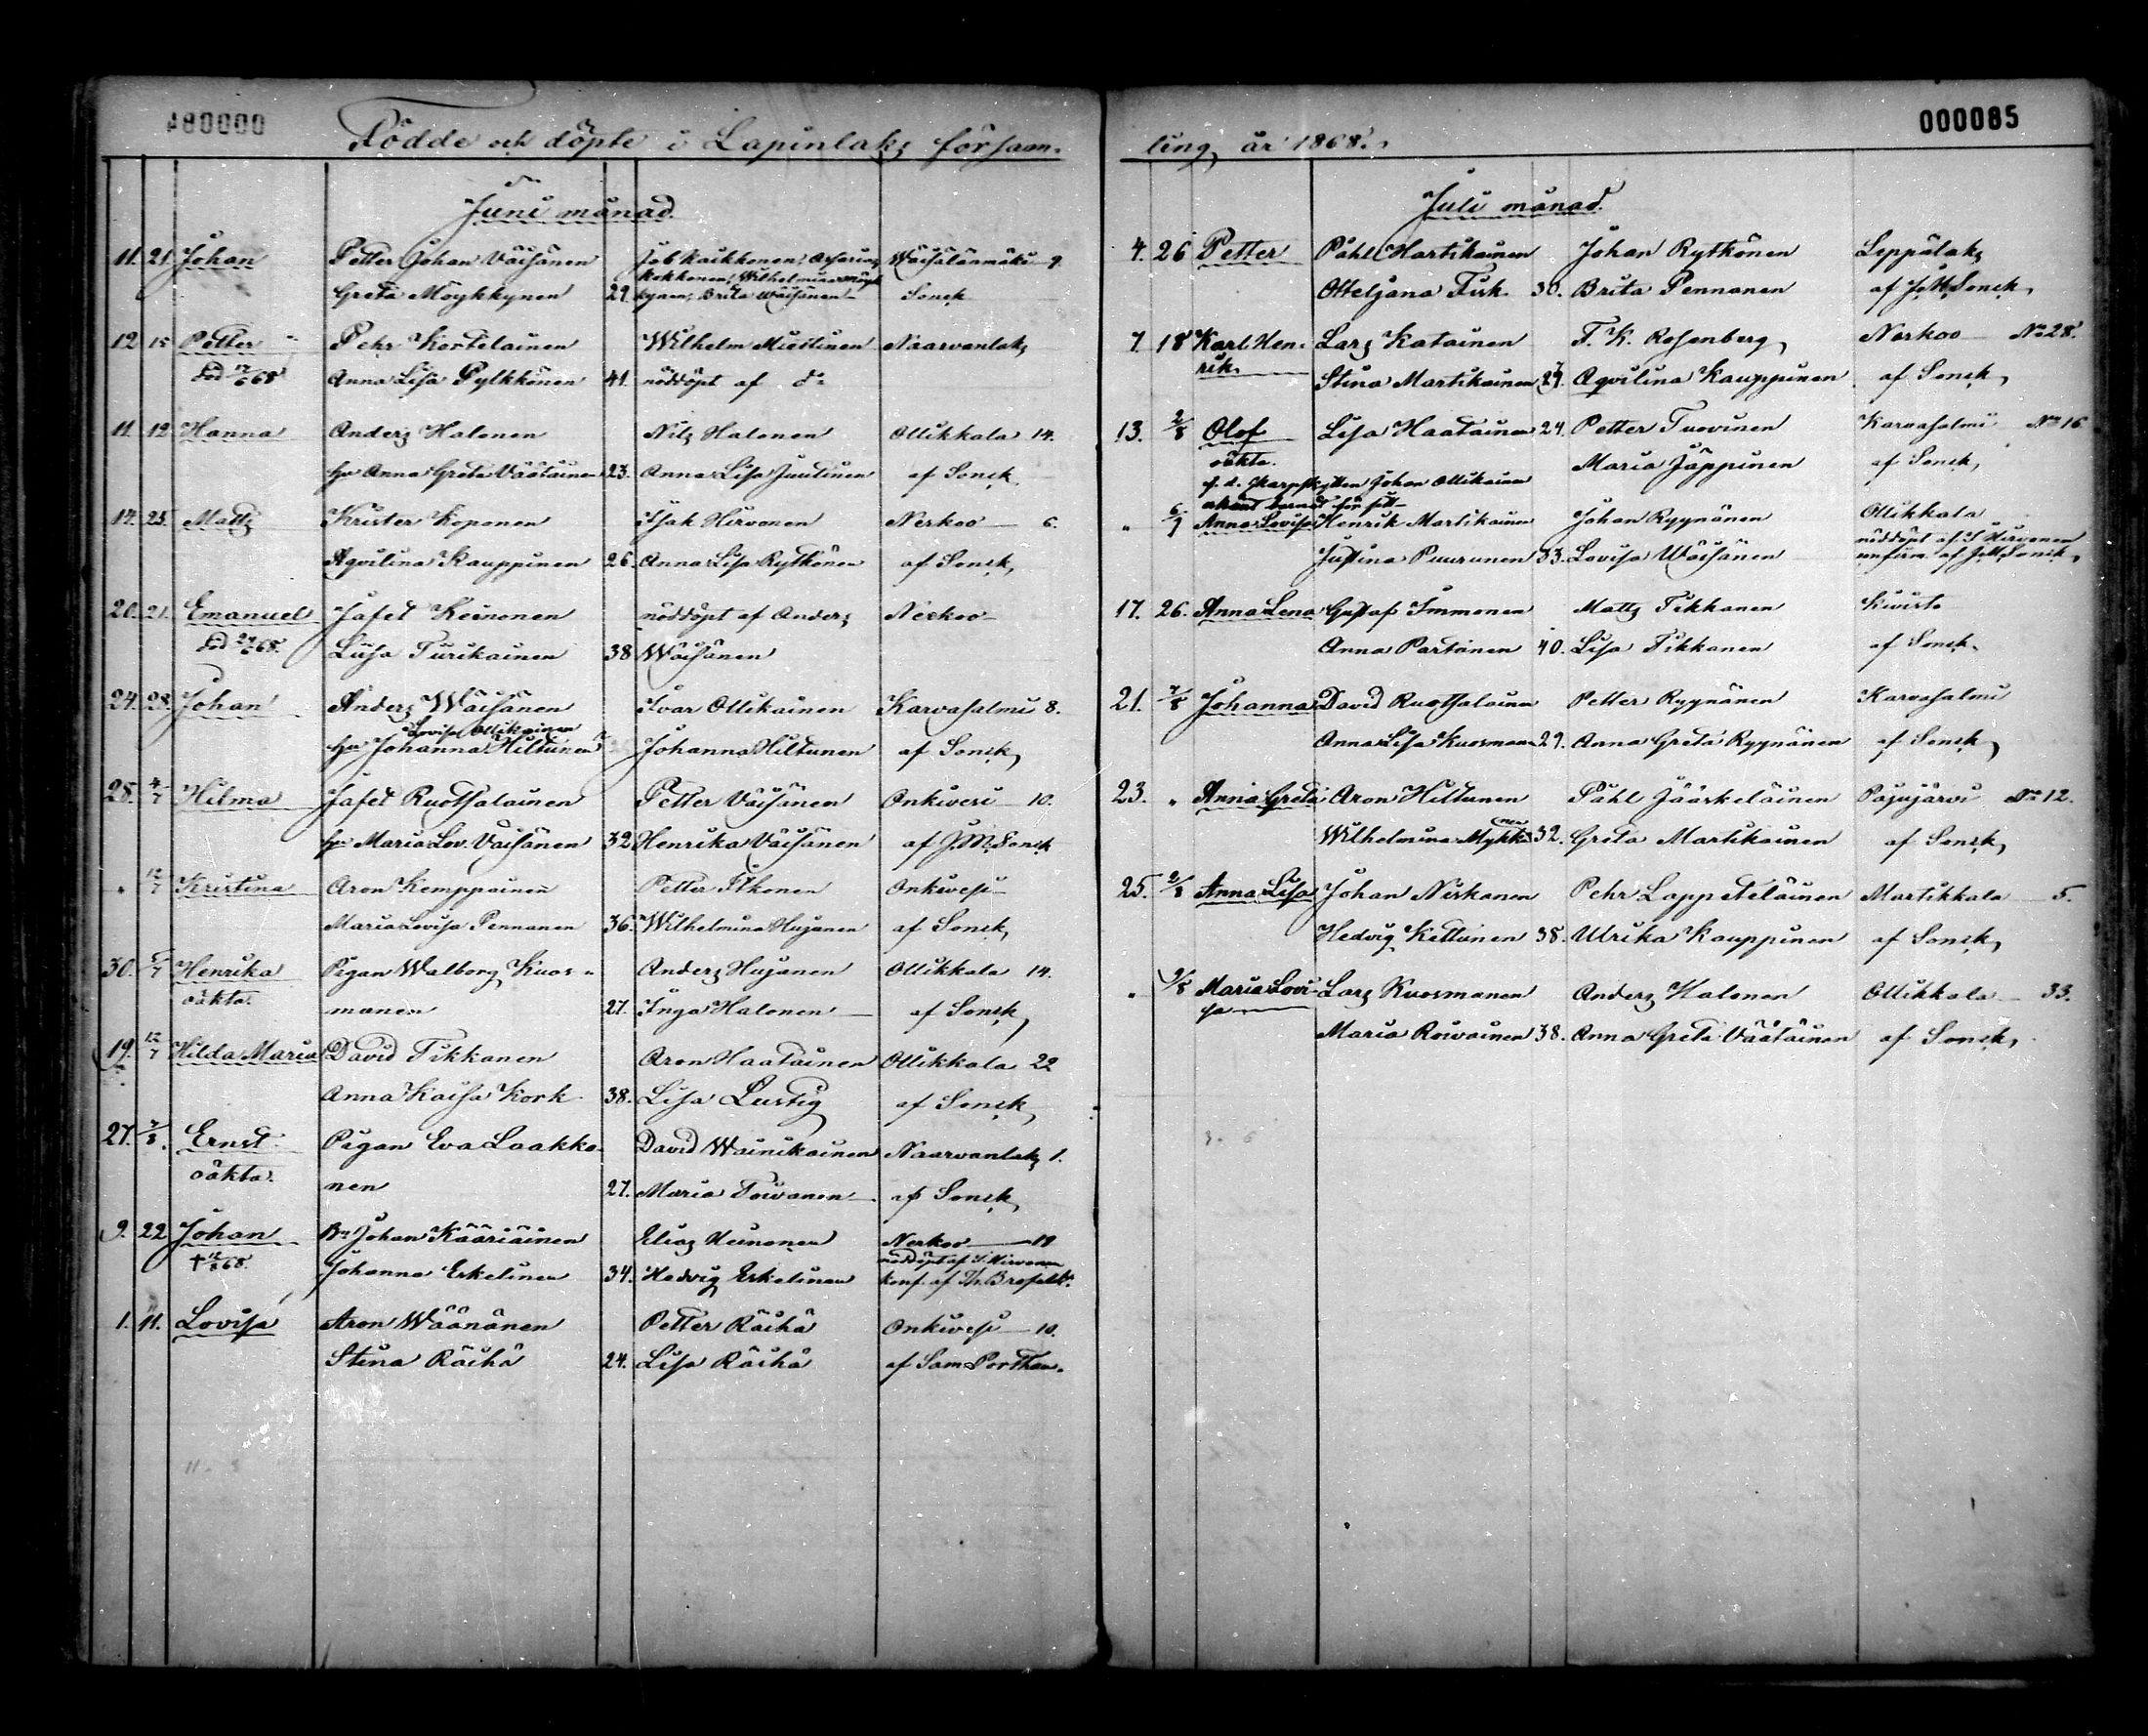 000085
Födde och döpte i Lapinlaks församling år 1868.
Juni månad.
11. 21. Johan Petter Johan Väisänen Job Kaikkonen, Wäisälänmäki 9.
Kokkonen, Wilhelmina Möyk
Greta Möykkynen 29. kynen, Brita Wäisänen Sonck
12 15 Petter Pehr Kortelainen Wilhelm Miettinen Naarvanlaks
död 17/6 68 Anna Lisa Pylkkönen 41. nöddöpt af do
11. 12. Hanna Anders Halonen Nils Halonen Ollikkala 14.
hu Anna Greta Väätäinen 23. Anna Lisa Juutinen af Sonck
17. 25. Matts Krister Koponen Isak Hirvonen Nerkoo 6.
Aqvilina Kauppinen 26. Anna Lisa Rytkönen af Sonck,
20. 21. Emanuel Jafet Keinonen nöddöpt af Anders Nerkoo
död 68. Liisa Turikainen 38 Wäisänen
24. 28. Johan Anders Wäisänen Ivar Ollikainen Karvasalmi 8.
Lovisa Ollikainen
hu Johanna Hiltunen Johanna Hiltunen af Sonck,
28. 4/7 Hilma Jafet Ruotsalainen Petter Väisänen Onkivesi 10.
hu Maria Lov. Väisänen 32 Henrika Väisänen af J.M. Sonck
" 12/7 Kristina Aron Kemppainen Petter Itkonen Onkivesi
Maria Lovisa Pennanen 36. Wilhelmina Hujanen af Sonck,
30. 5/7 Henrika Pigan Walborg Kuos- Anders Hujanen Ollikkala 14.
oäkta. manen 27. Inga Halonen af Sonck,
19. 12/7 Hilda Maria David Tikkanen Aron Haatainen Ollikkala 22
Anna Kaisa Kork 38. Lisa Lustig af Sonck,
27. 2/8. Ernst Pigan Eva Laakko- David Wainikainen Naarvanlaks 1.
oäkta. nen 27. Maria Toivanen af Sonck,
9. 22 Johan Bn Johan Kääriäinen Elias Heinonen Nerkoo 19
nöddöpt af Hirvonen
† 68. Johanna Eskelinen 34. Hedvig Eskelinen konf. af Th. Brofeldt.
1. 11. Lovisa Aron Wäänänen Petter Räihä Onkivesi 10.
Stina Räihä 24. Lisa Räihä af Sam Porthan.
Juli månad.
4. 26 Petter Påhl Hartikainen Johan Rytkönen Leppälaks
Otteljana Fisk 30. Brita Pennanen af J.M. Sonck,
7. 18 Karl Hen- Lars Katainen F. K. Rosenberg Nerkoo No 28.
rik Stina Martikainen 27. Aqvilina Kauppinen af Sonck,
13. 2/8 Olof Lisa Haatainen 24. Petter Tuovinen Karvasalmi No 16
oäkta. Maria Jäppinen af Sonck,
f. d. skarpskytten Johan Ollikainen
erkänt barnet för sitt
" Anna Lovisa Henrik Martikainen Johan Ryynänen Ollikkala
nöddöpt af Hirvonen
Justina Puurunen 33. Lovisa Wäisänen konfirm. af J.M. Sonck,
17. 26. Anna Lena Gustaf Immonen Matts Tikkanen Kivistö
Anna Partanen 40. Lisa Tikkanen af Sonck.
21. 2/8 Johanna David Ruotsalainen Petter Ryynänen Karvasalmi
Anna Lisa Kuosmanen 29. Anna Greta Ryynänen af Sonck,
23. " Anna Greta Aron Hiltunen Påhl Jääskeläinen Pajujärvi No 12.
nen
Wilhelmina Mykkä 32. Greta Martikainen af Sonck,
25. 2/8 Anna Lisa Johan Niskanen Pehr Lappeteläinen Martikkala 5.
Hedvig Kettunen 38. Ulrika Kauppinen af Sonck,
" Maria Lovi- Lars Kuosmanen Anders Halonen Ollikkala 33.
sa Maria Roivainen 38. Anna Greta Väätäinen af Sonck,